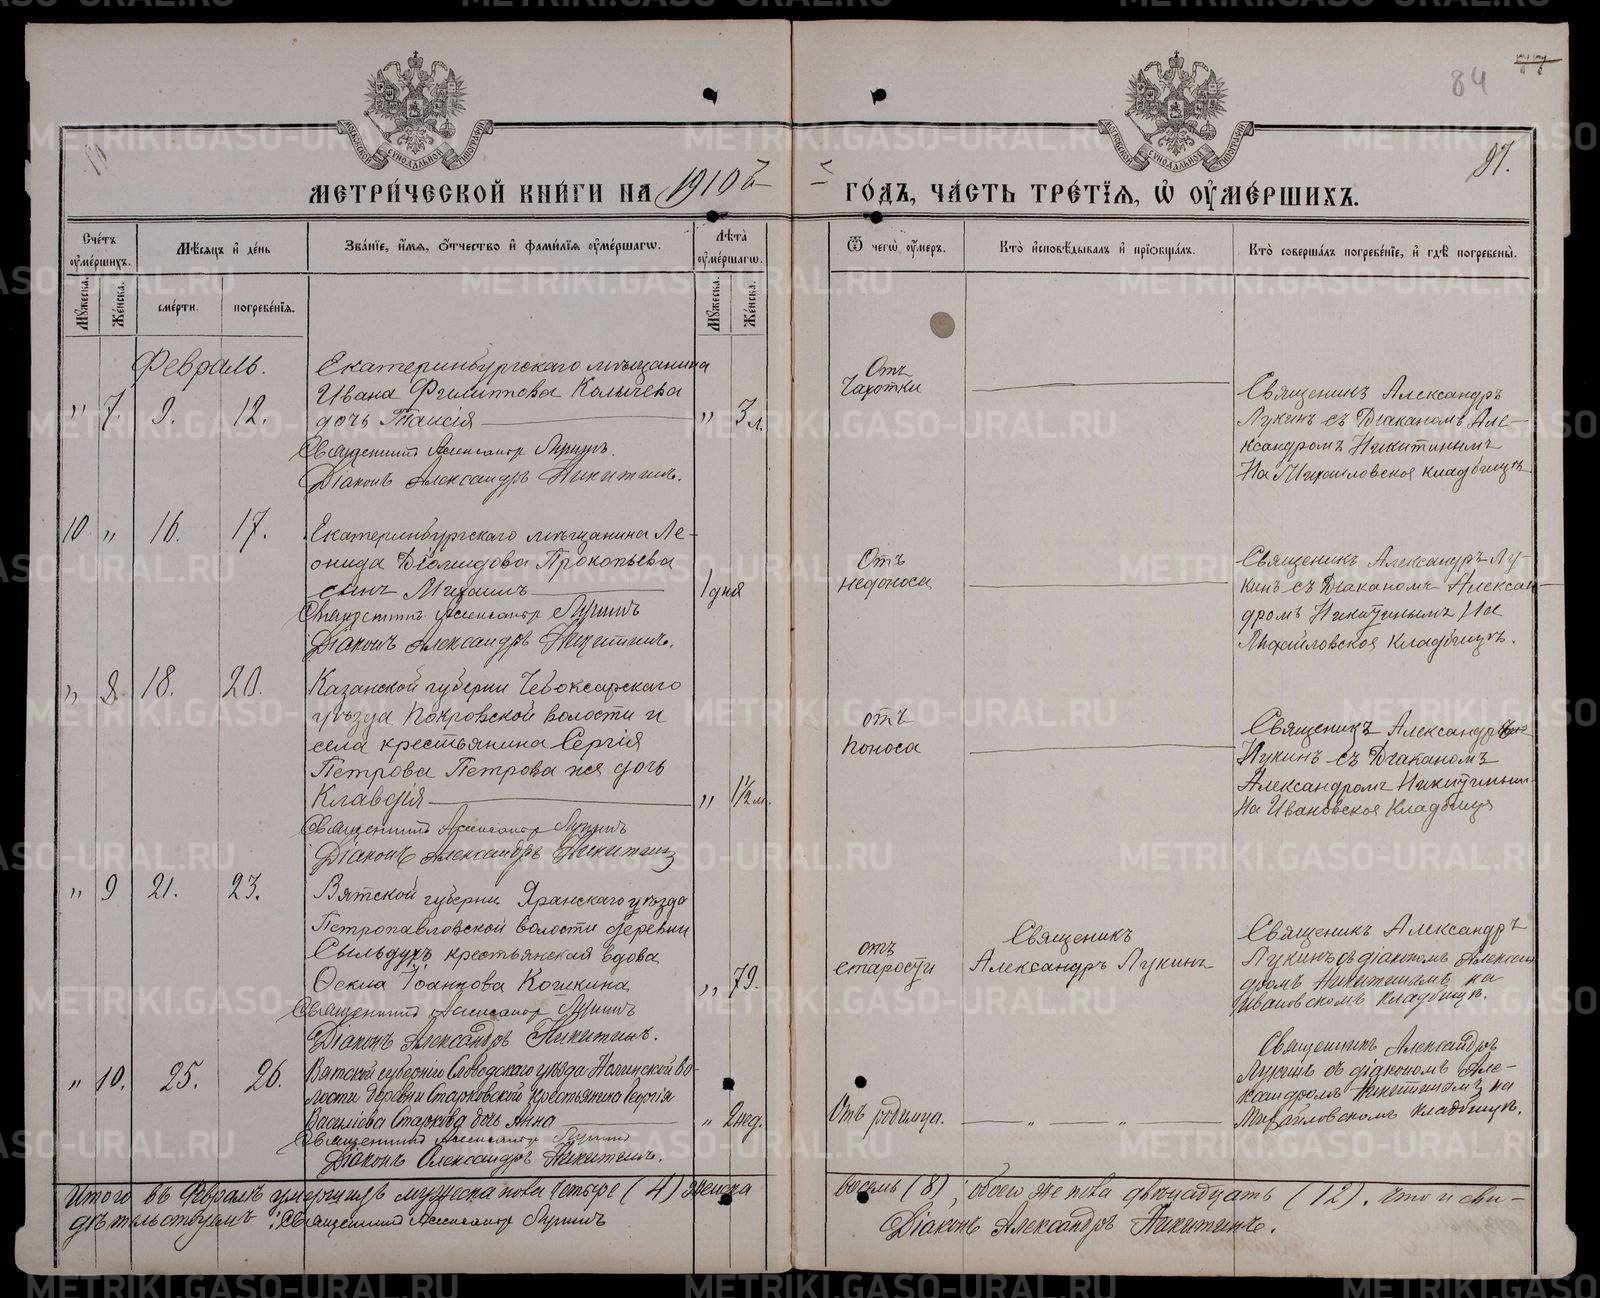 84
87.
МЕТРИ́ЧЕСКОЙ КНИ́ГИ НА 1910й
ГО́ДЪ, ЧА́СТЬ ТРЕ́ТЇѦ, Ѡ҆ ОУ҆МЕ́РШИХЪ.
Сче́тъ оу҆ме́ршихъ.
Мѣ́сѧцъ и҆ де́нь
Зва́нїе, и҆́мѧ, ѻ҆́тчество и҆ фами́лїѧ оу҆ме́ршагѡ.
Лѣ́та оу҆ме́ршагѡ.
Ѿ чегѡ̀ оу҆́меръ.
Кто̀ и҆сповѣ́дывалъ и҆ прїѡбща́лъ.
Кто̀ соверша́лъ погребе́нїе, и҆ гдѣ̀ погребены̀.
Мꙋ́жеска.
Же́нска.
сме́рти.
погребе́нїѧ.
Мꙋ́жеска.
Же́нска.
Февраль.
" 7. 9. 12.
Екатеринбургскаго мѣщанина
Ивана Филиппова Калычева
дочь Таисія
" 3 л.
Священникъ Александр Лукинъ.
Діаконъ Александръ Никитинъ.
Отъ
Чахотки
Священикъ Александръ
Лукинъ съ Діаканомъ Але-
ксандромъ Никитинымъ
На Михаиловское кладбище
10 " 16. 17.
Екатеринбургскаго мѣщанина Ле-
онида Діомидова Прокопьева
сынъ Михаилъ
1 дня
Священникъ Александр Лукинъ
Діаконъ Александръ Никитинъ.
Отъ
недоноса
Священикъ Александръ Лу-
кинъ съ Діаканомъ Алексан-
дромъ Никитинымъ На
Михаиловское кладбище.
" 8. 18. 20.
Казанской губерни Чебоксарскаго
уѣзда Покровской волости и
села крестьянина Сергія
Петрова Петрова же дочь
Клавдія
" 1½ м.
Священникъ Александр Лукинъ
Діаконъ Александръ Никитинъ
отъ
поноса
Священикъ Александръ
Лукинъ съ Діаканомъ
Александромъ Никитиным
На Ивановское Кладбище
" 9 21. 23.
Вятской губерни Яранскаго уѣзда
Петропавловской волости деревни
крестьянская вдова
Ѳекла Іоаннова Кошкина
" 79.
Священникъ Александр Лукинъ
Діаконъ Александръ Никитинъ.
отъ
старости
Священикъ
Александръ Лукинъ
Священикъ Александръ
Лукинъ съ діакономъ Алексан
дромъ Никитинымъ на
Ивановскомъ кладбищѣ.
" 10. 25. 26.
Вятской губерніи Слободскаго уѣзда во-
лости деревни Старковской крестьянина Георгія
Василіева Старкова дочь Анна
" 2 нед.
Священникъ Александр Лукинъ
Діаконъ Александръ Никитинъ.
Отъ родимца.
" "
Священникъ Александръ
Лукинъ съ діакономъ Але-
ксандромъ Никитинымъ на
Михайловскомъ кладбищѣ.
Итого въ Февралѣ умершихъ мужеска пола четыре (4) женска
восемь (8), обоего же пола двѣнадцать (12). что и сви-
дѣтельствуемъ: Священникъ Александр Лукинъ
Діаконъ Александръ Никитинъ.
METRIKI.GASO-URAL.RU